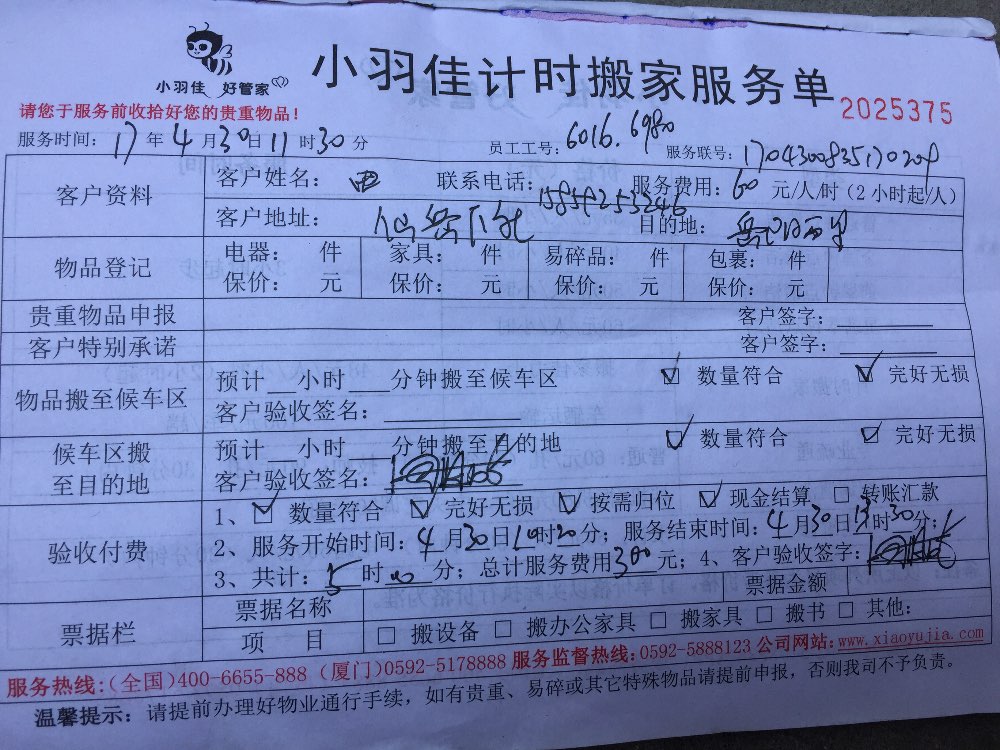 小羽佳 好管家
小羽佳计时搬家服务单
2025375
请您于服务前收拾好您的贵重物品！
服务时间：17年4月30日11时30分 员工工号：6016.6980 服务联号：
客户资料
客户姓名： 联系电话：15859253246 服务费用：60元/人/时（2小时起/人）
客户地址： 目的地：
物品登记
电器： 件 家具： 件 易碎品： 件 包裹： 件
保价： 元 保价： 元 保价： 元 保价： 元
贵重物品申报 客户签字：
客户特别承诺 客户签字：
物品搬至候车区
预计 小时 分钟搬至候车区 ☑ 数量符合 ☑ 完好无损
客户验收签名：
候车区搬至目的地
预计 小时 分钟搬至目的地 ☑ 数量符合 ☑ 完好无损
客户验收签名：
验收付费
1、☑ 数量符合 ☑ 完好无损 ☑ 按需归位 ☑ 现金结算 □ 转账汇款
2、服务开始时间：4月30日 时 分；服务结束时间：4月30日13时30分；
3、共计：5时00分；总计服务费用300元；4、客户验收签字：
票据栏
票据名称 票据金额
项 目 □ 搬设备 □ 搬办公家具 □ 搬家具 □ 搬书 □ 其他：
服务热线：（全国）400-6655-888（厦门）0592-5178888 服务监督热线：0592-5888123 公司网站：www.xiaoyujia.com
温馨提示：请提前办理好物业通行手续，如有贵重、易碎或其它特殊物品请提前申报，否则我司不予负责。